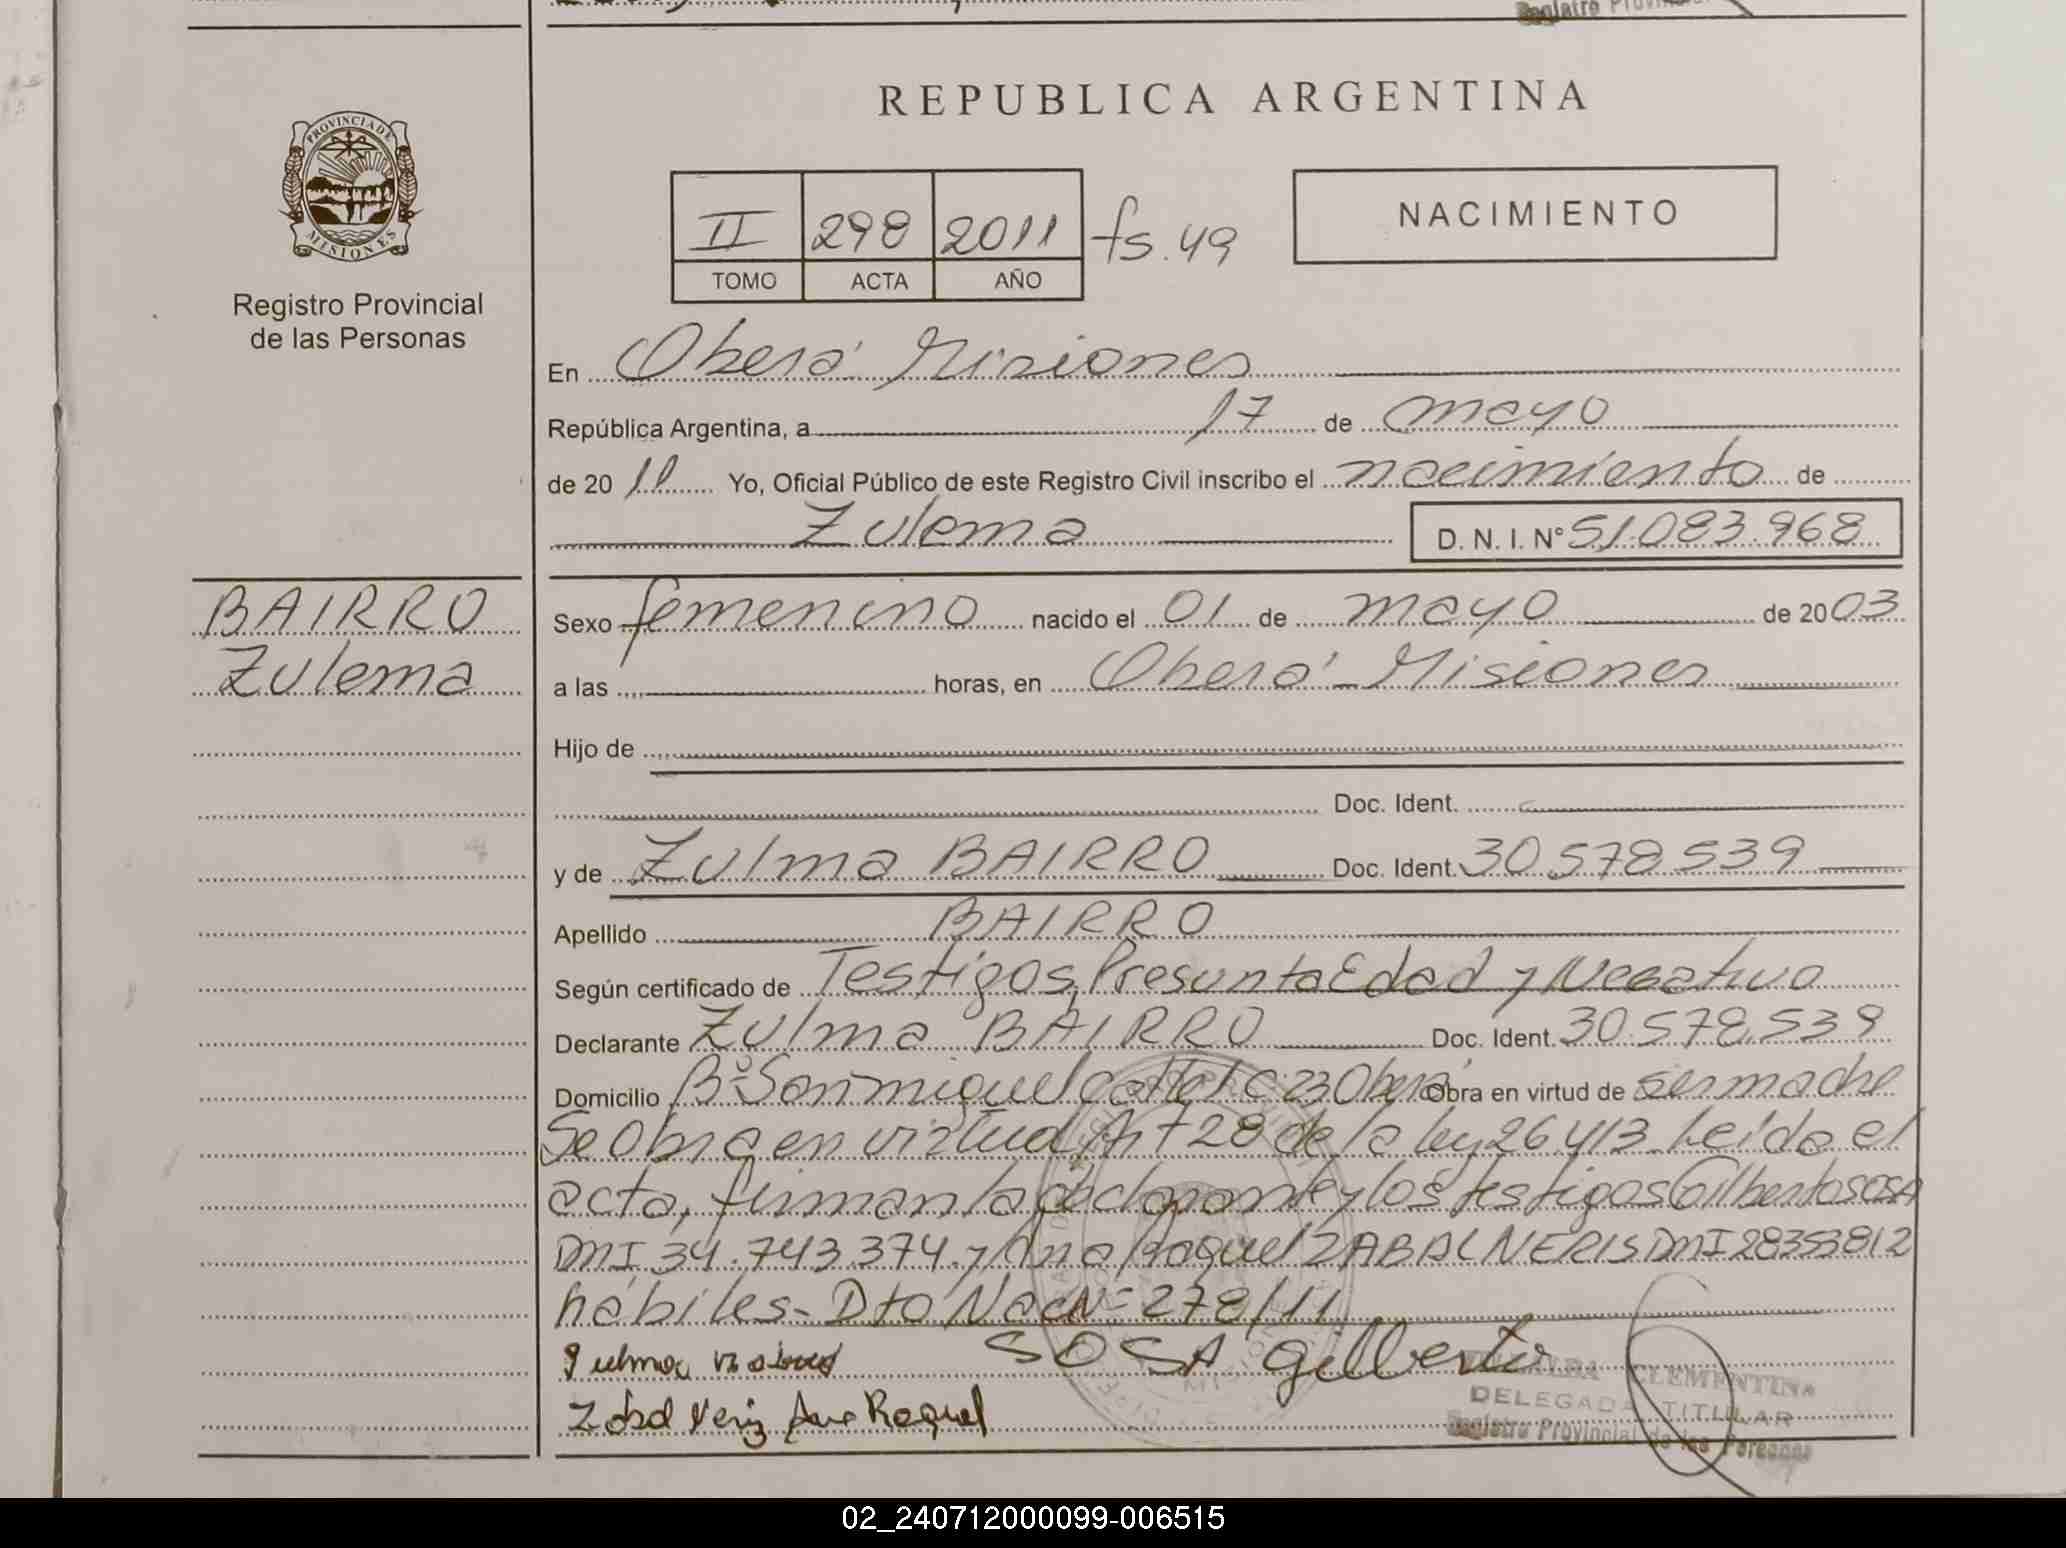 REPUBLICA ARGENTINA
PROVINCIA DE
MISIONES
Registro Provincial
de las Personas
II 298 2011 fs. 49
TOMO ACTA AÑO
NACIMIENTO
En Oberá Misiones
República Argentina, a 17 de mayo
de 2011 Yo, Oficial Público de este Registro Civil inscribo el nacimiento de
Zulema D. N. I. Nº 51.083.968
BAIRRO
Zulema
Sexo femenino nacido el 01 de mayo de 2003
a las horas, en Oberá - Misiones
Hijo de
Doc. Ident.
y de Zulma BAIRRO Doc. Ident. 30.578.539
Apellido BAIRRO
Según certificado de Testigos, Presunta Edad y Negativo
Declarante Zulma BAIRRO Doc. Ident. 30.578.539
Domicilio Bº San miguel Calle C. 23 Oberá Obra en virtud de ser madre
Se Obra en virtud Art 28 de la ley 26.413. Leída el
acta, firman la declarante y los testigos Gilberto SOSA
DNI 34.743.374. y Ana Raquel ZABAL NERIS DNI 28353812
hábiles - Dto Nac Nº 278/11
SOSA Gilberto
Raquel
CLEMENTINA
DELEGADA TITULAR
Registro Provincial de las Personas
02_240712000099-006515